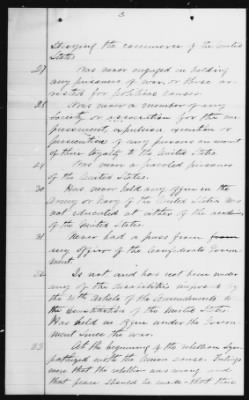 3
Destroying the commerce of the United
States
27 Was never engaged in holding
any prisoners of war or those ar-
rested for political causes.
28 Was never a member of any
society or association for the im-
prisonment, expulsion execution or
persecution of any persons on account
of their loyalty to the United States.
29 Was never a paroled prisoner
of the United States.
30 Has never held any office in the
Army or Navy of the United States was
not educated at either of the academies
of the United States.
31 Never had a pass from
any officer of the Confederate Govern
ment.
32 Is not and has not been under
any of the disabilities imposed by
the 14th Article of the Amendments to
the constitution of the United States
Has held no office under the Govern
ment since the war.
33 At the beginning of the rebellion sym-
pathized with the Union cause. Feelings
were that the rebellion was wrong and
that peace should be made that there